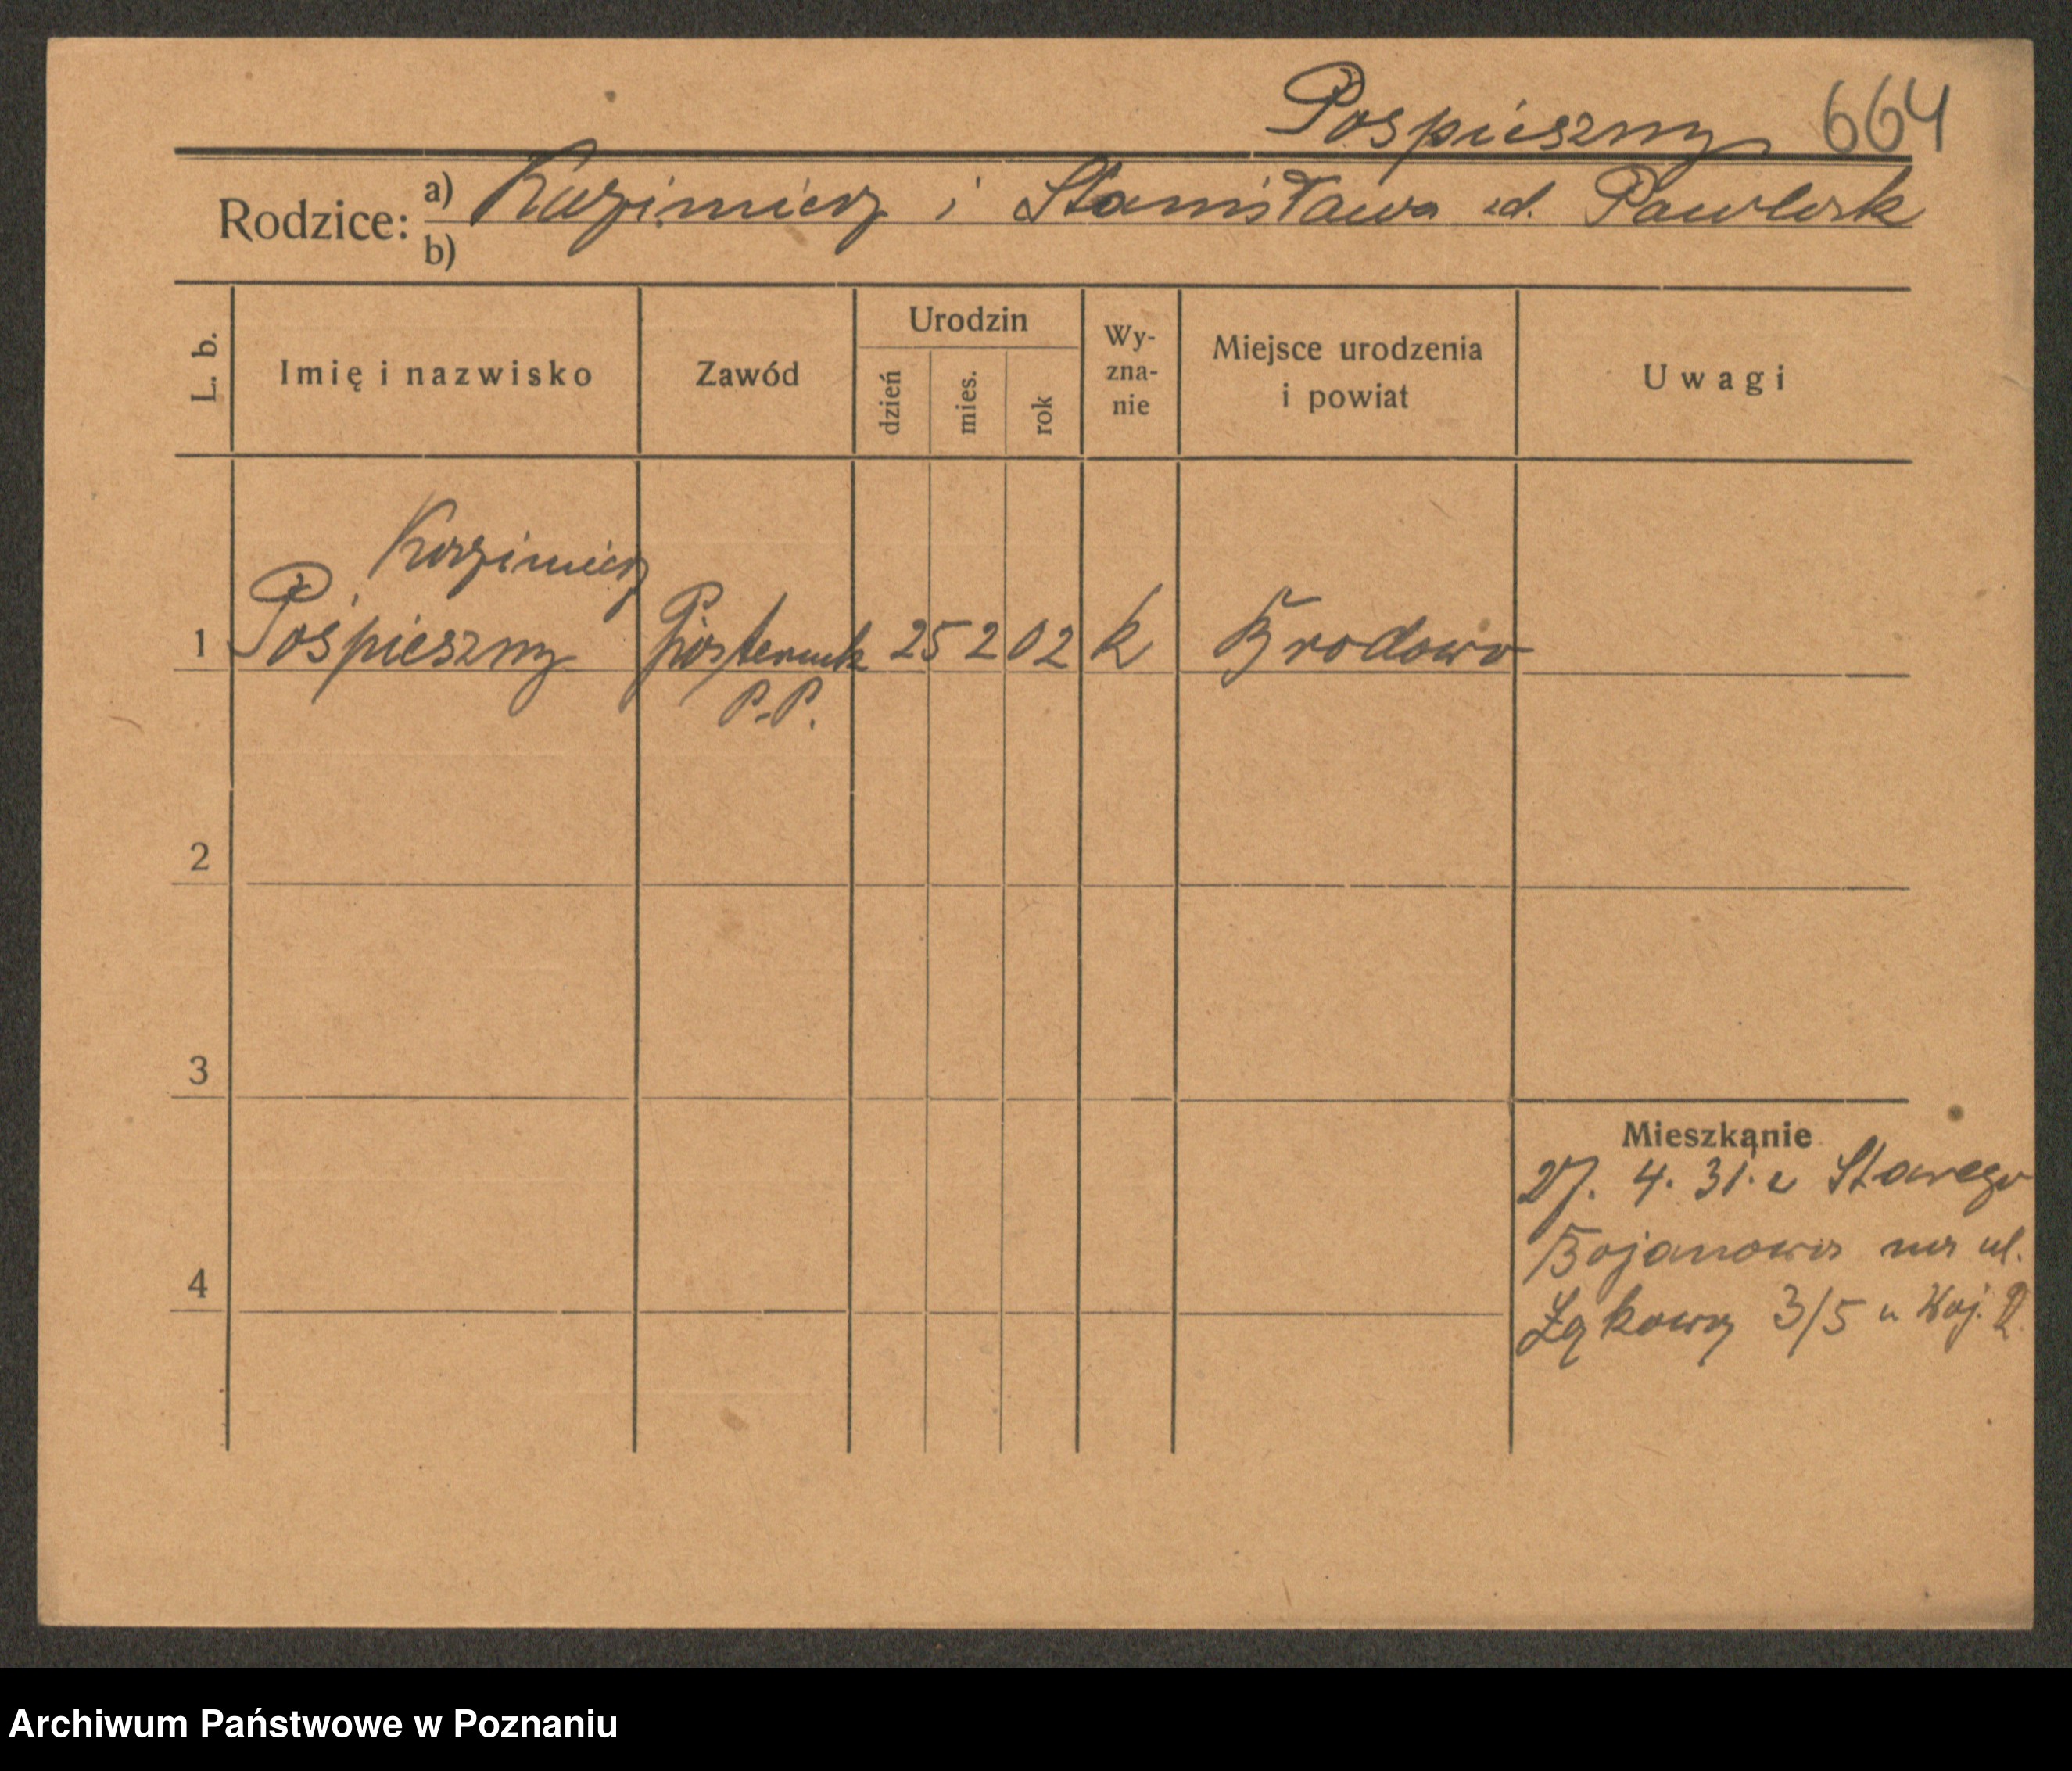 Pospieszny 664
Rodzice: a) Kazimierz i Stanisława zd. Pawlak
b)
L. b. Imię i nazwisko Zawód Urodzin dzień mies. rok Wy-zna-nie Miejsce urodzenia i powiat Uwagi
Kazimierz
1 Pośpieszny Posterunk 25 2 02 k Brodowo
P.P.
2
3
Mieszkanie
27. 4. 31. z Starego
Bojanowa na ul.
4
Łąkową 3/5 u
Archiwum Państwowe w Poznaniu